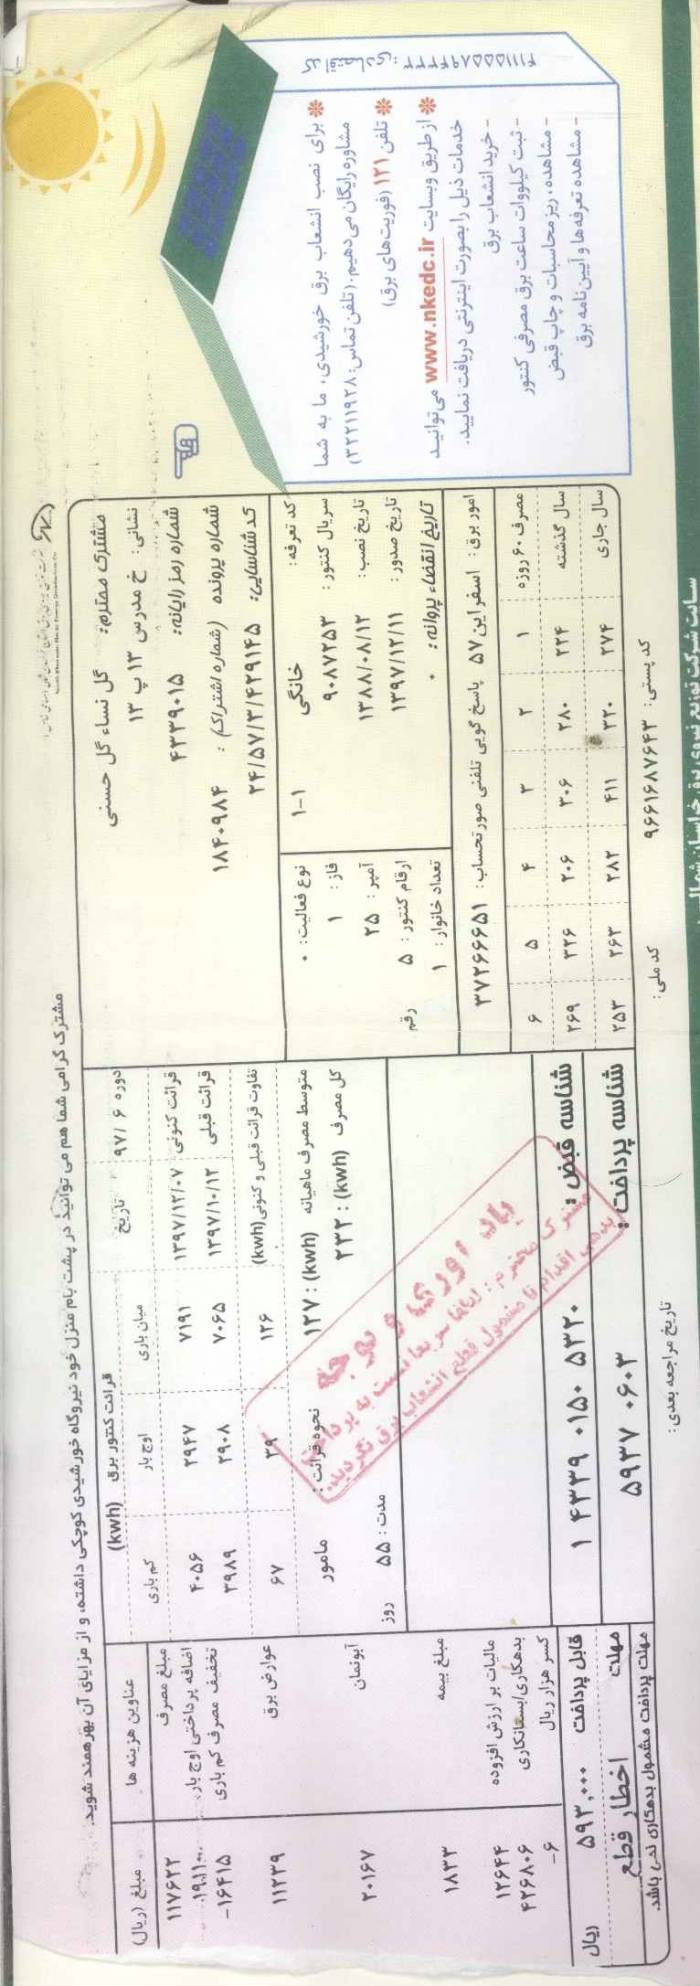 کد اقتصادی: ۴۱۱۱۵۵۵۸۹۴۴۳۳
* برای نصب انشعاب برق خورشیدی، ما به شما
مشاوره رایگان می‌دهیم. (تلفن تماس: ۳۲۲۱۱۹۲۸)
* تلفن ۱۲۱ (فوریت‌های برق)
* از طریق وبسایت www.nkedc.ir می‌توانید
خدمات ذیل را بصورت اینترنتی دریافت نمایید.
- خرید انشعاب برق
- ثبت کیلووات ساعت برق مصرفی کنتور
- مشاهده، ریز محاسبات و چاپ قبض
- مشاهده تعرفه‌ها و آیین نامه برق
مشترک گرامی شما هم می توانید در پشت بام منزل خود نیروگاه خورشیدی کوچکی داشته، و از مزایای آن بهره‌مند شوید.
مشترک محترم: گل نساء گل حسنی
نشانی: خ مدرس ۱۳ پ ۱۳
شماره رمز رایانه: ۴۳۳۹۰۱۵
شماره پرونده (شماره اشتراک): ۱۸۴۰۹۸۴
کد شناسایی: ۲۴/۵۷/۳/۴۲۹۱۴۵
کد تعرفه: خانگی ۱-۱
نوع فعالیت: ۰
سریال کنتور: ۹۰۸۷۲۵۳
فاز: ۱
تاریخ نصب: ۱۳۸۸/۰۸/۱۲
آمپر: ۲۵
تاریخ صدور: ۱۳۹۷/۱۲/۱۱
ارقام کنتور: ۵ رقم
تاریخ انقضاء پروانه: ۰
تعداد خانوار: ۱
امور برق: اسفراین ۵۷ پاسخ گویی تلفنی صورتحساب: ۳۷۲۶۶۶۵۱
مصرف ۶۰ روزه ۱ ۲ ۳ ۴ ۵ ۶
سال گذشته ۲۲۴ ۲۸۰ ۳۰۶ ۲۰۶ ۳۲۶ ۲۶۹
سال جاری ۲۷۴ ۳۲۰ ۴۱۱ ۲۸۲ ۲۶۳ ۲۵۳
کد پستی: ۹۶۶۱۶۸۷۶۴۳ کد ملی: تاریخ مراجعه بعدی:
دوره ۶ /۹۷ قرائت کنتور برق (kwh)
تاریخ میان باری اوج بار کم باری
قرائت کنونی ۱۳۹۷/۱۲/۰۷ ۷۱۹۱ ۲۹۴۷ ۴۰۵۶
قرائت قبلی ۱۳۹۷/۱۰/۱۲ ۷۰۶۵ ۲۹۰۸ ۳۹۸۹
تفاوت قرائت قبلی و کنونی (kwh) ۱۲۶ ۳۹ ۶۷
متوسط مصرف ماهیانه (kwh): ۱۲۷ نحوه قرائت: مامور
کل مصرف (kwh): ۲۳۲ مدت: ۵۵ روز
یاد آوری و توجه
مشترک محترم: لطفا سریعا نسبت به پرداخت
بدهی اقدام تا مشمول قطع انشعاب برق نگردید.
شناسه قبض: ۱ ۴۳۳۹ ۰۱۵۰ ۵۳۲۰
شناسه پرداخت: ۵۹۳۷ ۰۶۰۳
عناوین هزینه ها مبلغ (ریال)
مبلغ مصرف ۱۱۷۶۲۲
اضافه پرداختی اوج بار
تخفیف مصرف کم باری -۱۶۴۱۵
عوارض برق ۱۱۲۳۹
آبونمان ۲۰۱۶۷
مبلغ بیمه ۱۸۳۳
مالیات بر ارزش افزوده ۱۲۶۴۴
بدهکاری/بستانکاری ۴۲۶۸۰۶
کسر هزار ریال -۶
قابل پرداخت ۵۹۳,۰۰۰ ریال
مهلت اخطار قطع
مهلت پرداخت مشمول بدهکاری نمی باشد.
سایت شرکت توزیع نیروی برق خراسان شمالی